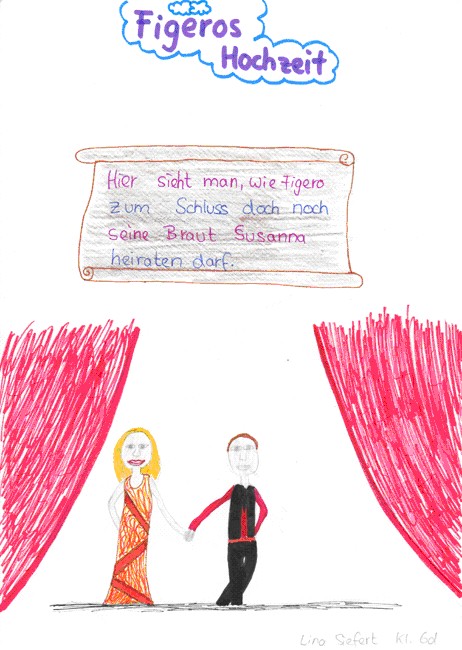 Figeros
Hochzeit
Hier sieht man, wie Figero
zum Schluss doch noch
seine Braut Susanna
heiraten darf.
Lina Sefert Kl. 6d